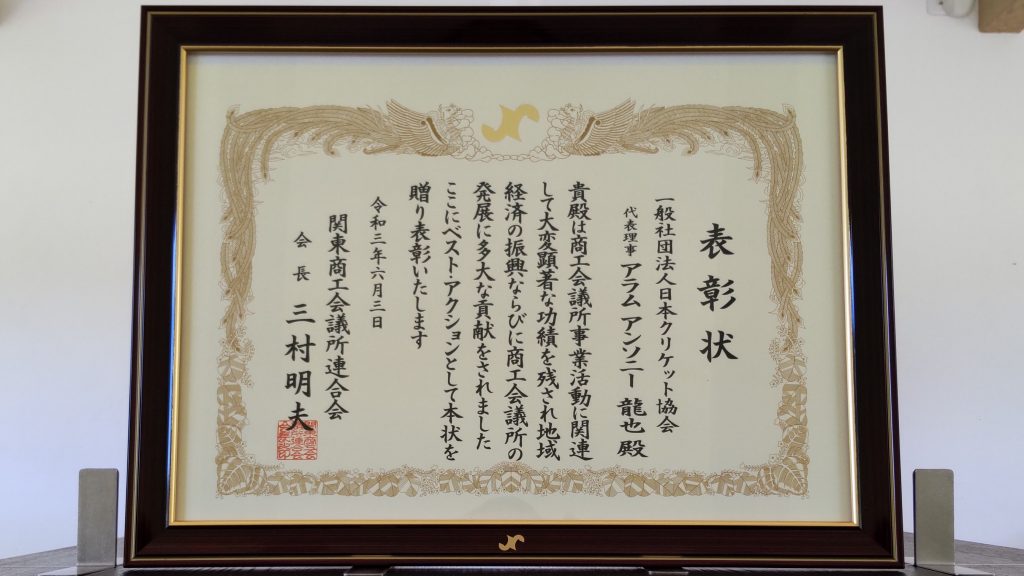 表彰状
一般社団法人日本クリケット協会
代表理事 アラム アンソニー 龍也 殿
貴殿は商工会議所事業活動に関連
して大変顕著な功績を残され地域
経済の振興ならびに商工会議所の
発展に多大な貢献をされました
ここにベスト・アクションとして本状を
贈り表彰いたします
令和三年六月三日
関東商工会議所連合会
会長 三村明夫